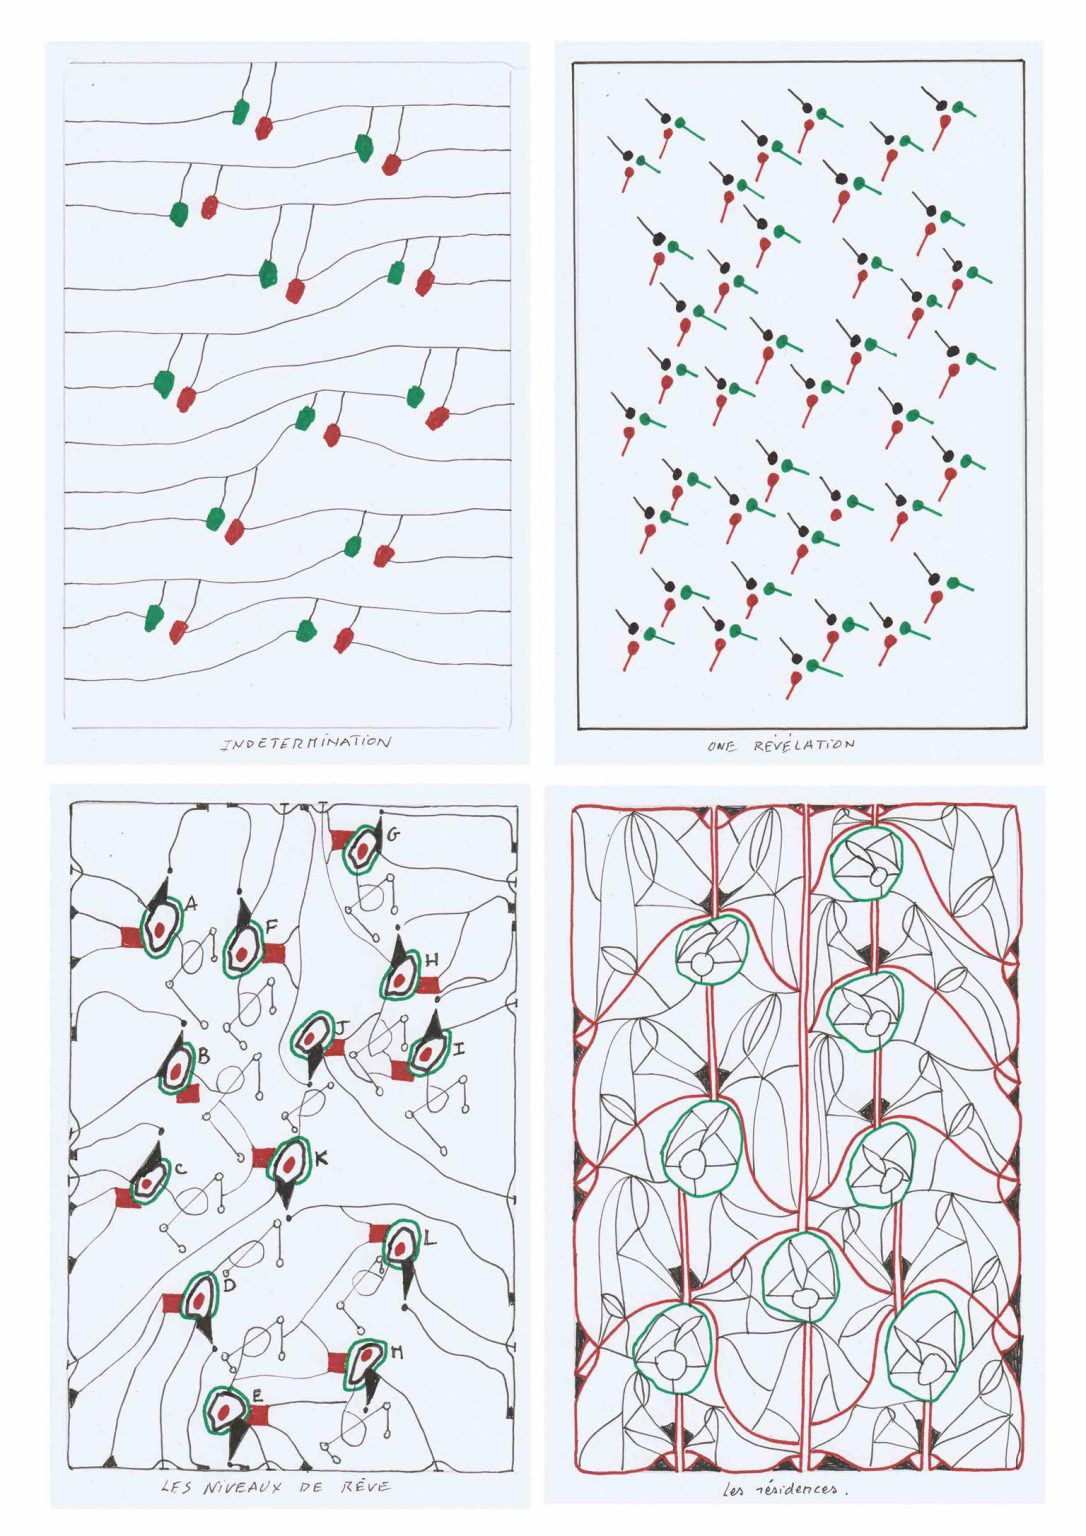 INDETERMINATION
ONE RÉVÉLATION
G
A
F
H
J
I
B
K
C
L
D
M
E
LES NIVEAUX DE RÊVE
les résidences.